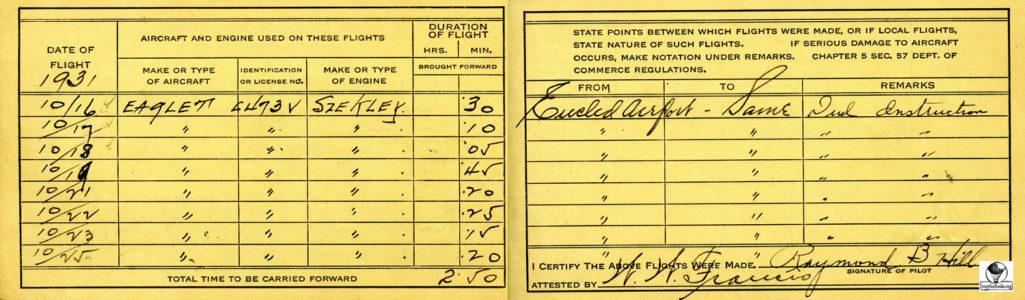 DATE OF FLIGHT 1931
AIRCRAFT AND ENGINE USED ON THESE FLIGHTS
DURATION OF FLIGHT
HRS. MIN.
MAKE OR TYPE OF AIRCRAFT
IDENTIFICATION OR LICENSE NO.
MAKE OR TYPE OF ENGINE
BROUGHT FORWARD
10/16 EAGLETT SZEKLEY .30
10/17 " " " .10
10/18 " " " .05
10/19 " " " .45
10/21 " " " .20
10/22 " " " .25
10/23 " " " .15
10/25 " " " .20
TOTAL TIME TO BE CARRIED FORWARD 2.50
STATE POINTS BETWEEN WHICH FLIGHTS WERE MADE, OR IF LOCAL FLIGHTS,
STATE NATURE OF SUCH FLIGHTS. IF SERIOUS DAMAGE TO AIRCRAFT
OCCURS, MAKE NOTATION UNDER REMARKS. CHAPTER 5 SEC. 57 DEPT. OF
COMMERCE REGULATIONS.
FROM TO REMARKS
Euclid Airport - Same Dual Instruction
" " " "
" " " "
" " " "
" " " "
" " " "
" " " "
" " " "
I CERTIFY THE ABOVE FLIGHTS WERE MADE. Raymond B Hill
SIGNATURE OF PILOT
ATTESTED BY N. N. Francis